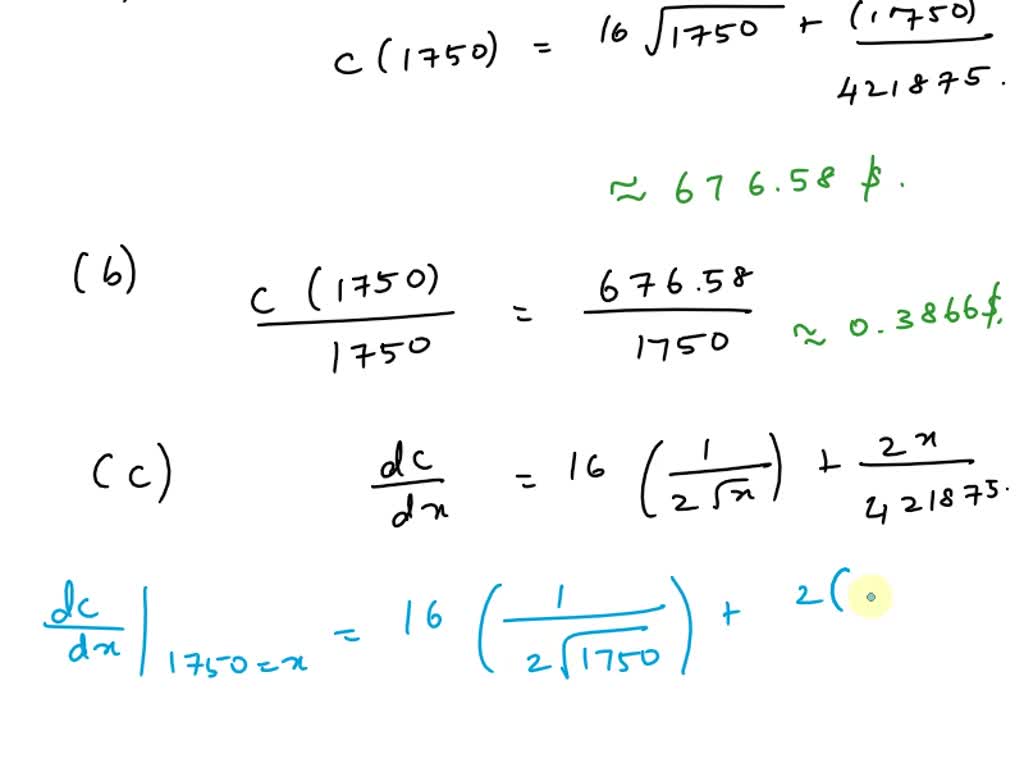 c(1750) = 16√1750 + (1750)/421875.
≈ 676.58 $.
(b) c(1750)/1750 = 676.58/1750 ≈ 0.3866$.
(c) dc/dx = 16 (1/2√x) + 2x/421875.
dc/dx | 1750=x = 16 (1/2√1750) + 2(